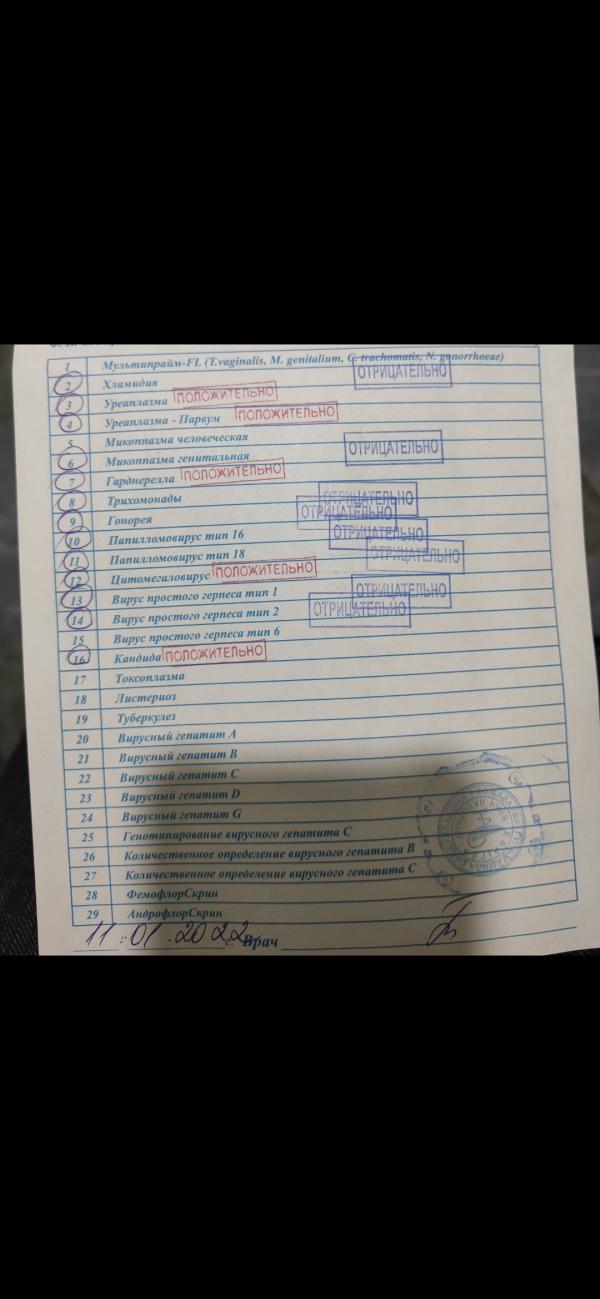 1 Мультипрайм-FL (T.vaginalis, M. genitalium, C. trachomatis, N. gonorrhoeae)
2 Хламидия ОТРИЦАТЕЛЬНО
3 Уреаплазма ПОЛОЖИТЕЛЬНО
4 Уреаплазма - Парвум ПОЛОЖИТЕЛЬНО
5 Микоплазма человеческая
6 Микоплазма генитальная ОТРИЦАТЕЛЬНО
7 Гарднерелла ПОЛОЖИТЕЛЬНО
8 Трихомонады ОТРИЦАТЕЛЬНО
9 Гонорея ОТРИЦАТЕЛЬНО
10 Папилломовирус тип 16 ОТРИЦАТЕЛЬНО
11 Папилломовирус тип 18 ОТРИЦАТЕЛЬНО
12 Цитомегаловирус ПОЛОЖИТЕЛЬНО
13 Вирус простого герпеса тип 1 ОТРИЦАТЕЛЬНО
14 Вирус простого герпеса тип 2 ОТРИЦАТЕЛЬНО
15 Вирус простого герпеса тип 6
16 Кандида ПОЛОЖИТЕЛЬНО
17 Токсоплазма
18 Листериоз
19 Туберкулез
20 Вирусный гепатит А
21 Вирусный гепатит В
22 Вирусный гепатит С
23 Вирусный гепатит D
24 Вирусный гепатит G
25 Генотипирование вирусного гепатита С
26 Количественное определение вирусного гепатита В
27 Количественное определение вирусного гепатита С
28 ФемофлорСкрин
29 АндрофлорСкрин
11.01.2022 г. Врач